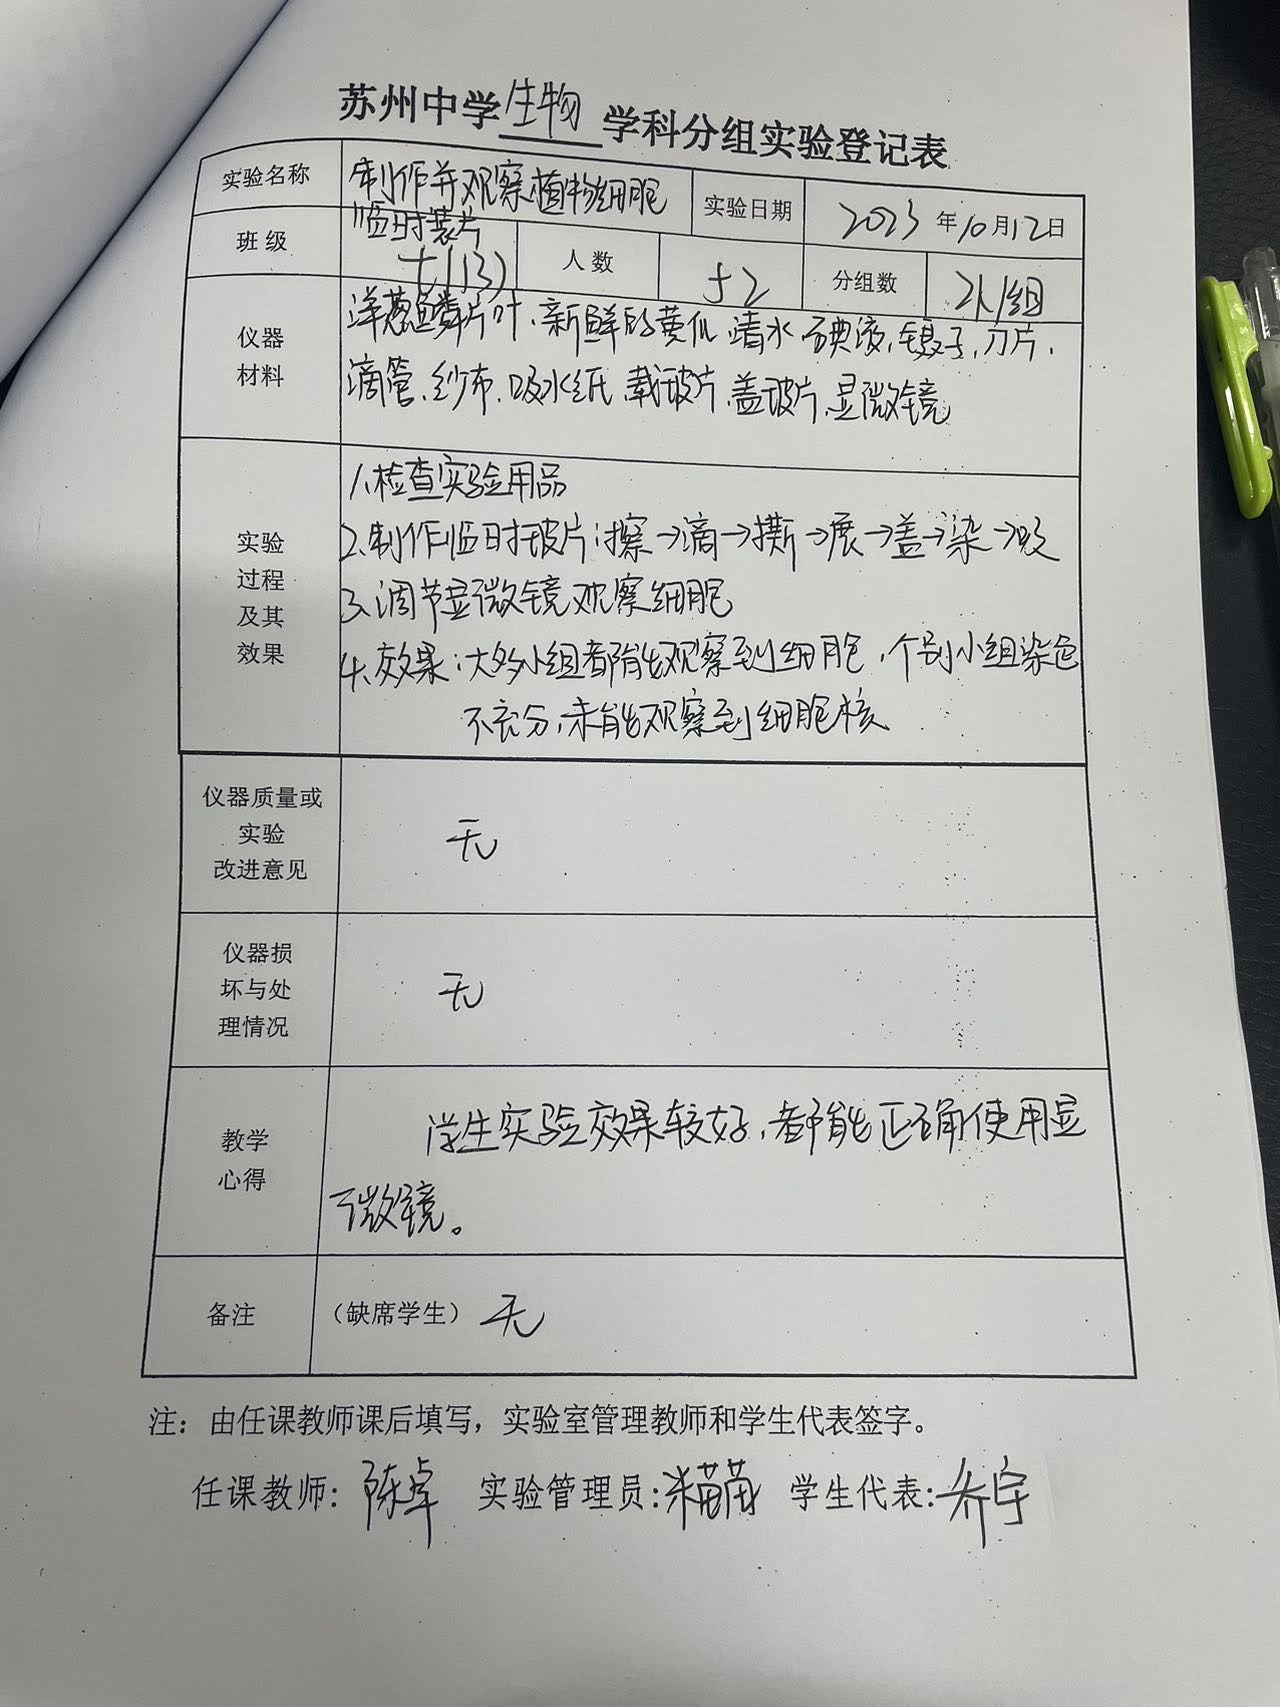 苏州中学生物学科分组实验登记表
实验名称 制作并观察植物细胞临时装片 实验日期 2023年10月12日
班级 七(13) 人数 52 分组数 2人/组
仪器材料
洋葱鳞片叶、新鲜的黄瓜、清水、碘液、镊子、刀片、
滴管、纱布、吸水纸、载玻片、盖玻片、显微镜
实验过程及其效果
1、检查实验用品
2、制作临时玻片:擦→滴→撕→展→盖→染→吸
3、调节显微镜观察细胞
4、效果:大多小组都能观察到细胞,个别小组染色
不充分,未能观察到细胞核
仪器质量或实验改进意见 无
仪器损坏与处理情况 无
教学心得
学生实验效果较好,都能正确使用显
微镜。
备注 (缺席学生) 无
注:由任课教师课后填写,实验室管理教师和学生代表签字。
任课教师: 陈卓 实验管理员: 学生代表: 乔宇